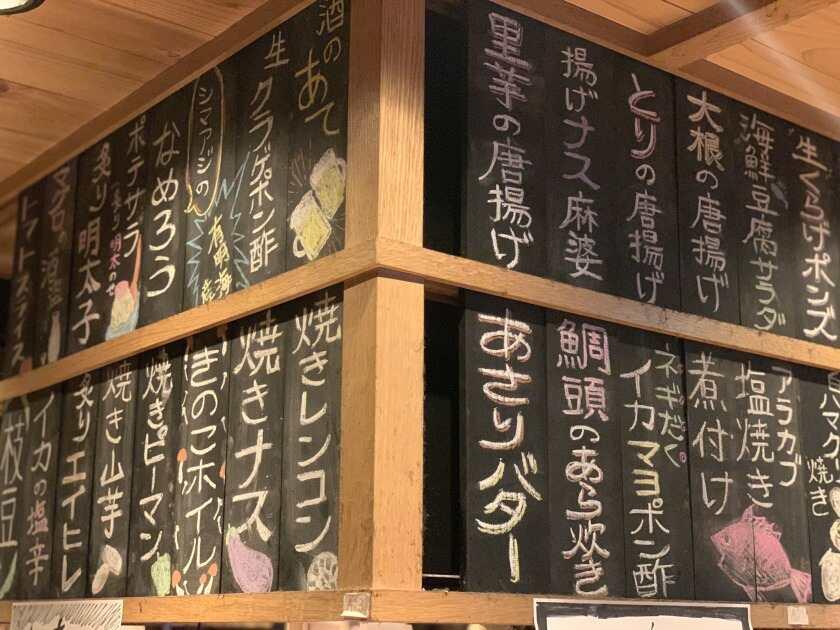 酒のあて
生クラゲポン酢
シマアジの
有明海
なめろう
ポテサラ
炙り明太子
トマトスライス
焼きレンコン
焼きナス
きのこホイル
焼きピーマン
焼き山芋
炙りエイヒレ
イカの塩辛
枝豆
生くらげポンズ
海鮮豆腐サラダ
大根の唐揚げ
とりの唐揚げ
揚げナス麻婆
里芋の唐揚げ
ハマグリ
焼き
アラカブ
塩焼き
煮付け
ネギだく
イカマヨポン酢
鯛頭のあら炊き
あさりバター